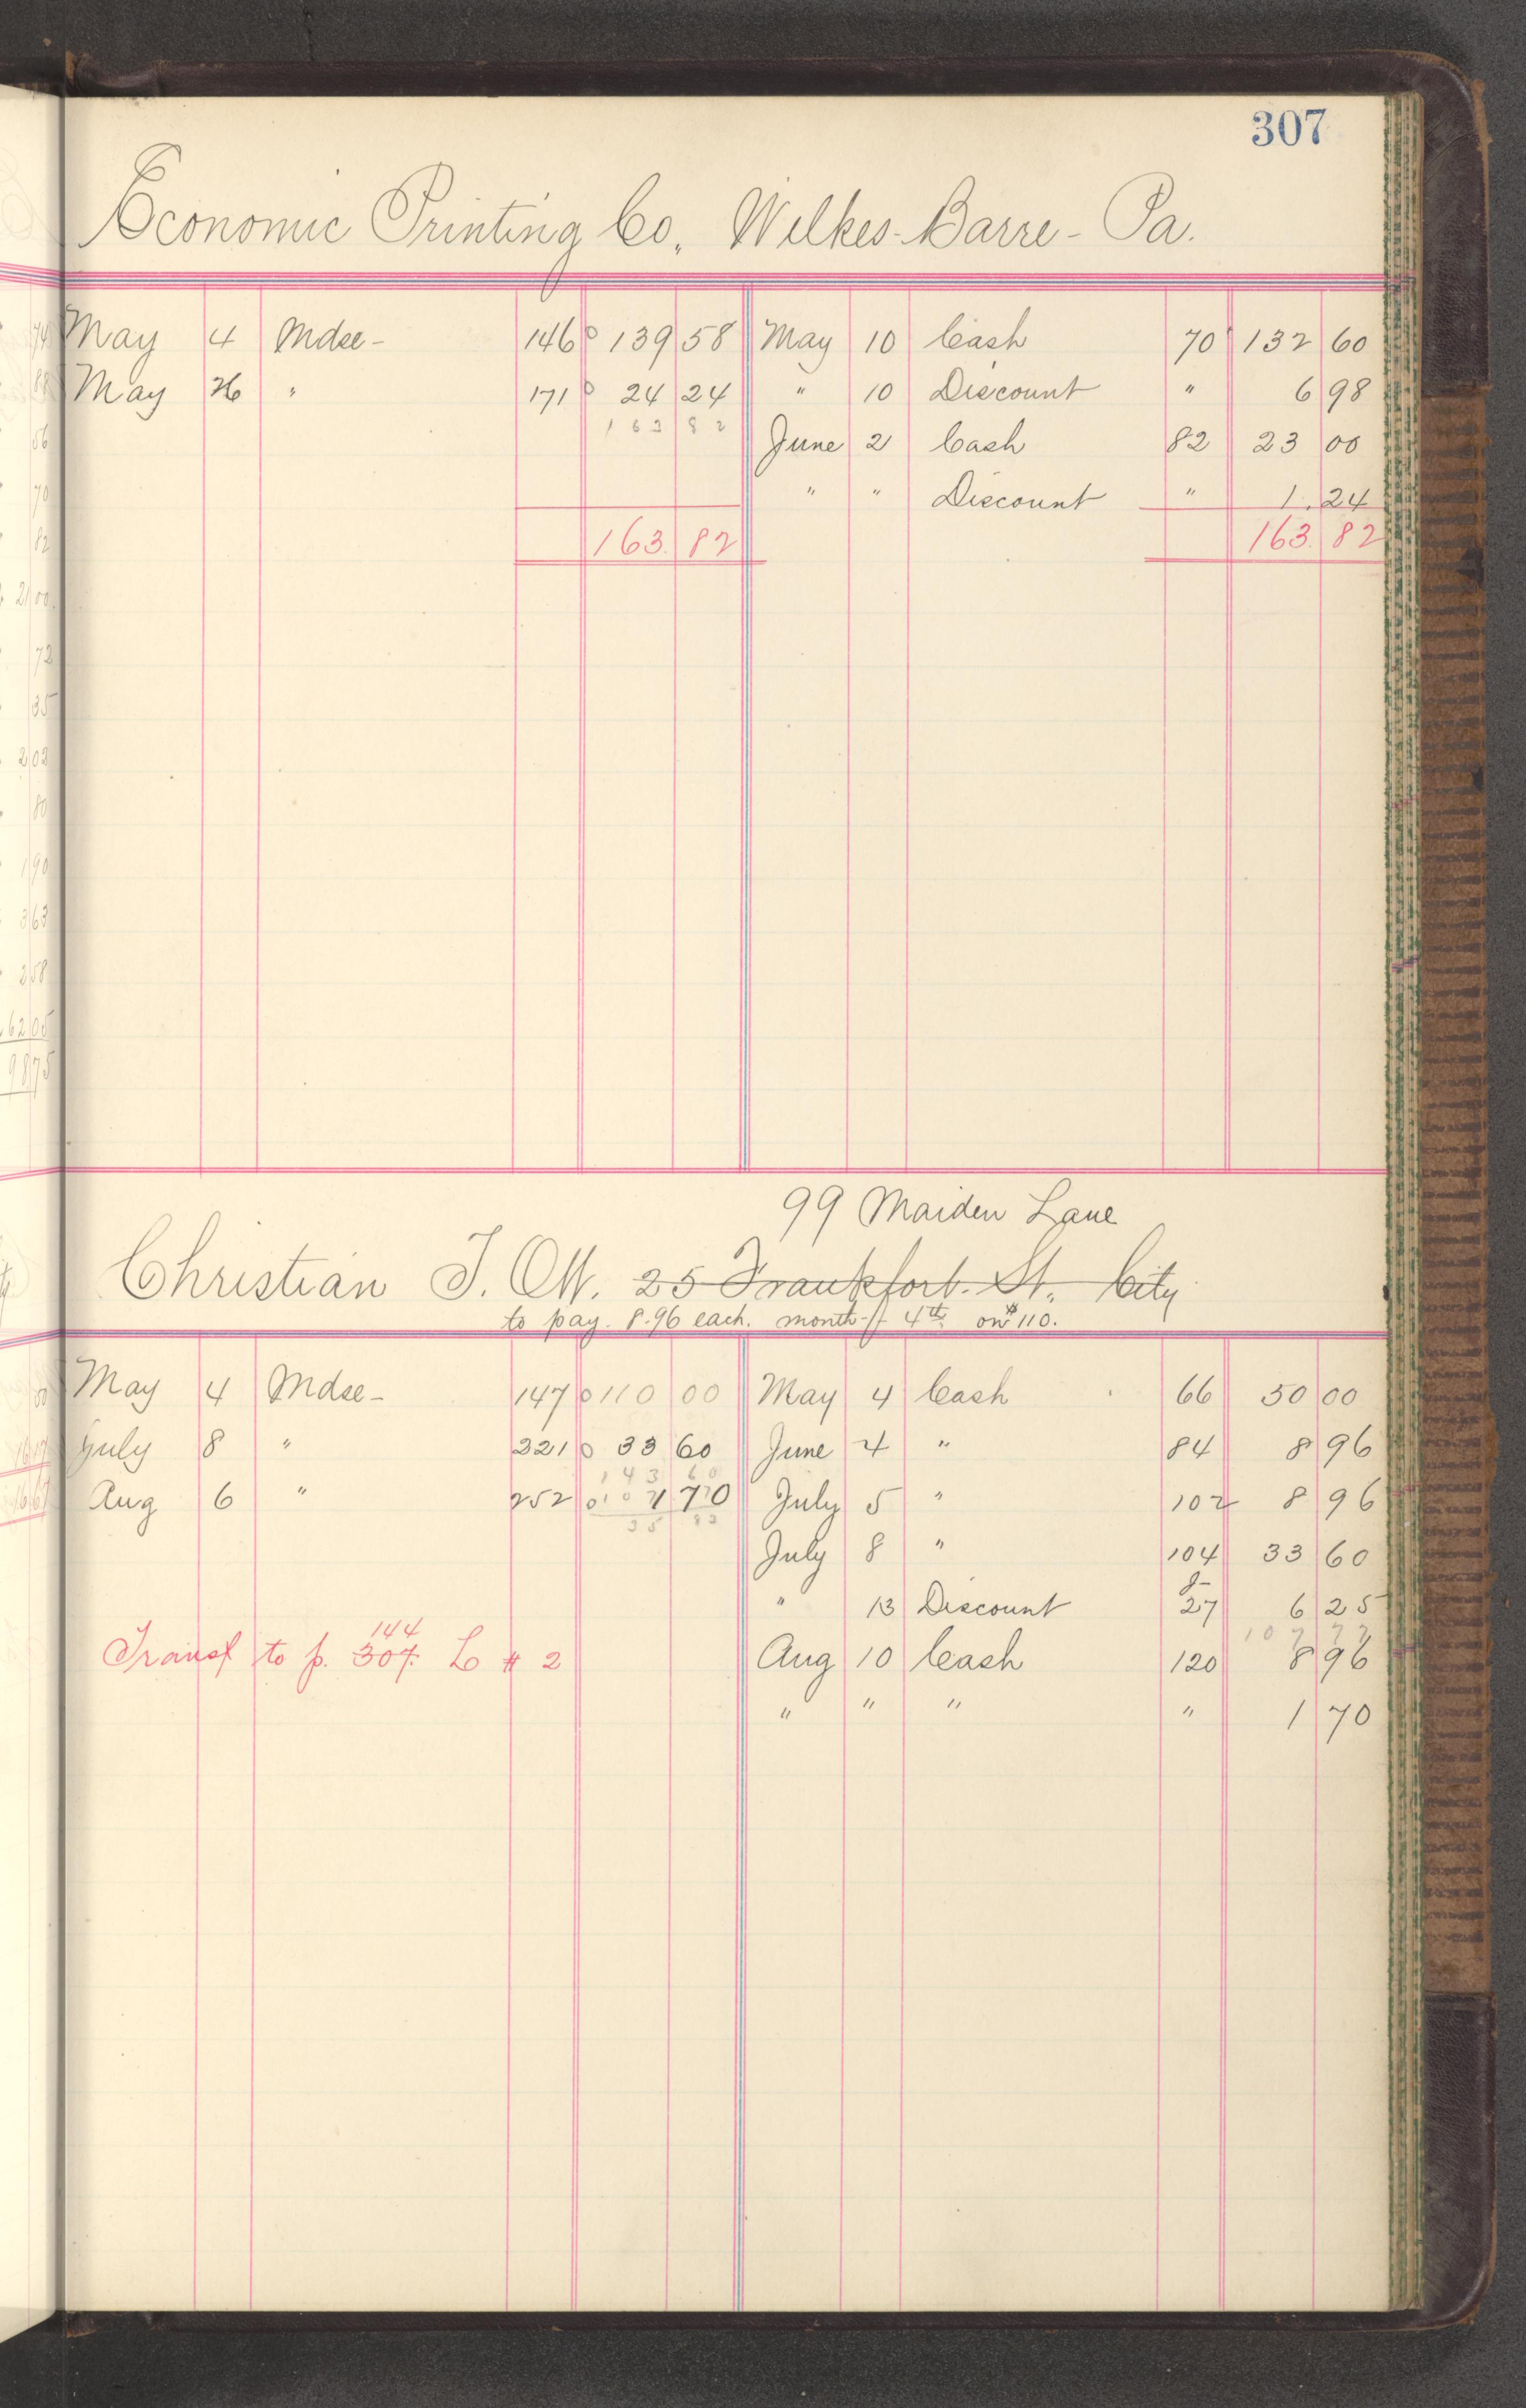 307
Economic Printing Co. Wilkes-Barre - Pa.
May 4 Mdse - 146 139 58 May 10 Cash 70 132 60
May 26 " 171 24 24 " 10 Discount " 6 98
163 82
June 2 Cash 82 23 00
" " Discount " 1.24
163. 82 163. 82
99 Maiden Lane
Christian T. Ott. 25 Frankfort. St. City
to pay. 8.96 each. month 4th on $110.
May 4 Mdse - 147 110 00 May 4 Cash 66 50 00
July 8 " 221 33 60 June 4 " 84 8 96
143 60
Aug 6 " 252 1 70 July 5 " 102 8 96
35 83
July 8 " 104 33 60
" 13 Discount J- 27 6 25
107 77
144
Transf to p. 307. L # 2 Aug 10 Cash 120 8 96
" " " " 1 70